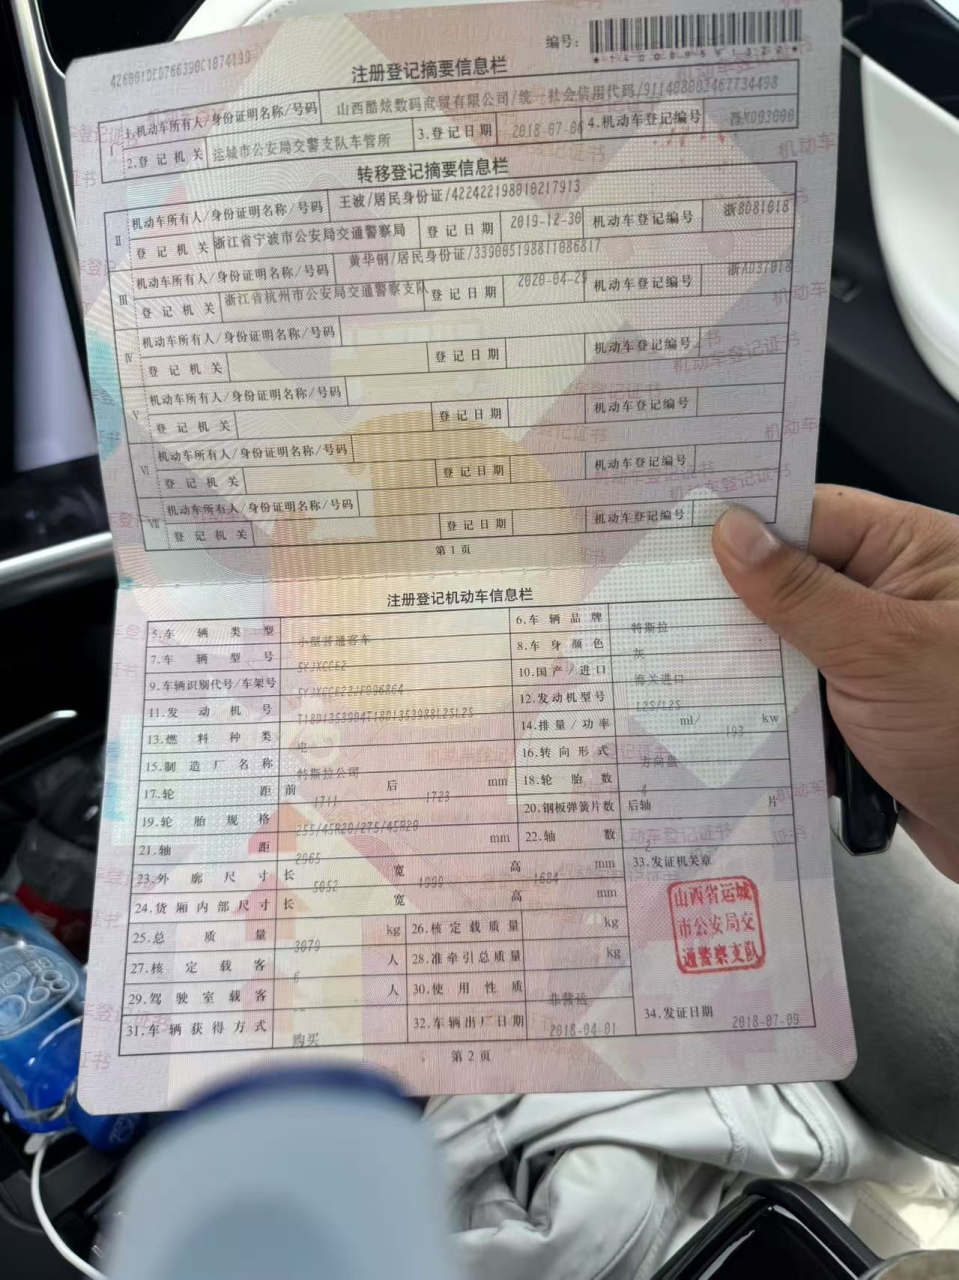 编号:
426001DE0766390C1074199
注册登记摘要信息栏
I 1.机动车所有人/身份证明名称/号码 山西酷炫数码商贸有限公司/统一社会信用代码/911408003467734498
2.登记机关 运城市公安局交警支队车管所 3.登记日期 2018-07-06 4.机动车登记编号
转移登记摘要信息栏
II 机动车所有人/身份证明名称/号码 王波/居民身份证/422422198010217913
登记机关 浙江省宁波市公安局交通警察局 登记日期 2019-12-30 机动车登记编号 浙B081018
III 机动车所有人/身份证明名称/号码 黄华钢/居民身份证/339005198811086817
登记机关 浙江省杭州市公安局交通警察支队 登记日期 2020-04-29 机动车登记编号 浙AD37018
IV 机动车所有人/身份证明名称/号码
登记机关 登记日期 机动车登记编号
V 机动车所有人/身份证明名称/号码
登记机关 登记日期 机动车登记编号
VI 机动车所有人/身份证明名称/号码
登记机关 登记日期 机动车登记编号
VII 机动车所有人/身份证明名称/号码
登记机关 登记日期 机动车登记编号
第1页
注册登记机动车信息栏
5.车辆类型 小型普通客车 6.车辆品牌 特斯拉
7.车辆型号 5YJXCCE2 8.车身颜色 灰
9.车辆识别代号/车架号 5YJXCCE22JF096864 10.国产/进口 海关进口
11.发动机号 T18D1353994T18D1353988L2SL2S 12.发动机型号 L2S/L2S
13.燃料种类 电 14.排量/功率 ml/ 193 kw
15.制造厂名称 特斯拉公司 16.转向形式 方向盘
17.轮距 前 1711 后 1723 mm 18.轮胎数 4
19.轮胎规格 255/45R20/275/45R20 20.钢板弹簧片数 后轴 片
21.轴距 2965 mm 22.轴数 2
23.外廓尺寸 长 5052 宽 1999 高 1684 mm 33.发证机关章
24.货厢内部尺寸 长 宽 高 mm
25.总质量 3079 kg 26.核定载质量 kg
27.核定载客 6 人 28.准牵引总质量 kg
29.驾驶室载客 -- 人 30.使用性质 非营运
31.车辆获得方式 购买 32.车辆出厂日期 2018-04-01 34.发证日期 2018-07-09
山西省运城
市公安局交
通警察支队
第2页